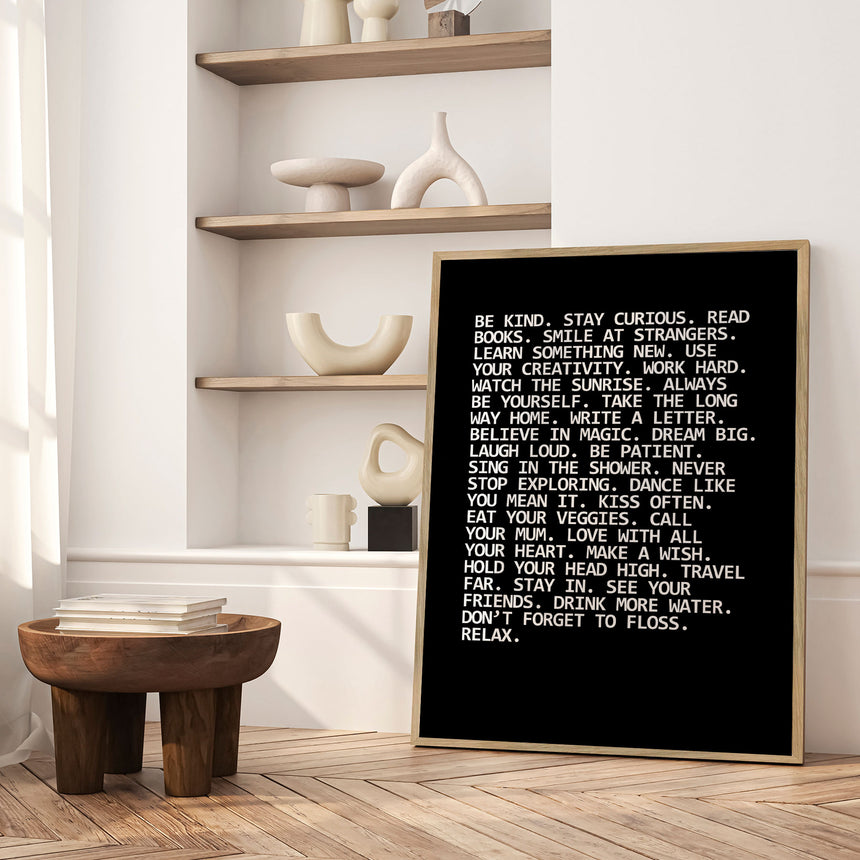 BE KIND. STAY CURIOUS. READ
BOOKS. SMILE AT STRANGERS.
LEARN SOMETHING NEW. USE
YOUR CREATIVITY. WORK HARD.
WATCH THE SUNRISE. ALWAYS
BE YOURSELF. TAKE THE LONG
WAY HOME. WRITE A LETTER.
BELIEVE IN MAGIC. DREAM BIG.
LAUGH LOUD. BE PATIENT.
SING IN THE SHOWER. NEVER
STOP EXPLORING. DANCE LIKE
YOU MEAN IT. KISS OFTEN.
EAT YOUR VEGGIES. CALL
YOUR MUM. LOVE WITH ALL
YOUR HEART. MAKE A WISH.
HOLD YOUR HEAD HIGH. TRAVEL
FAR. STAY IN. SEE YOUR
FRIENDS. DRINK MORE WATER.
DON'T FORGET TO FLOSS.
RELAX.